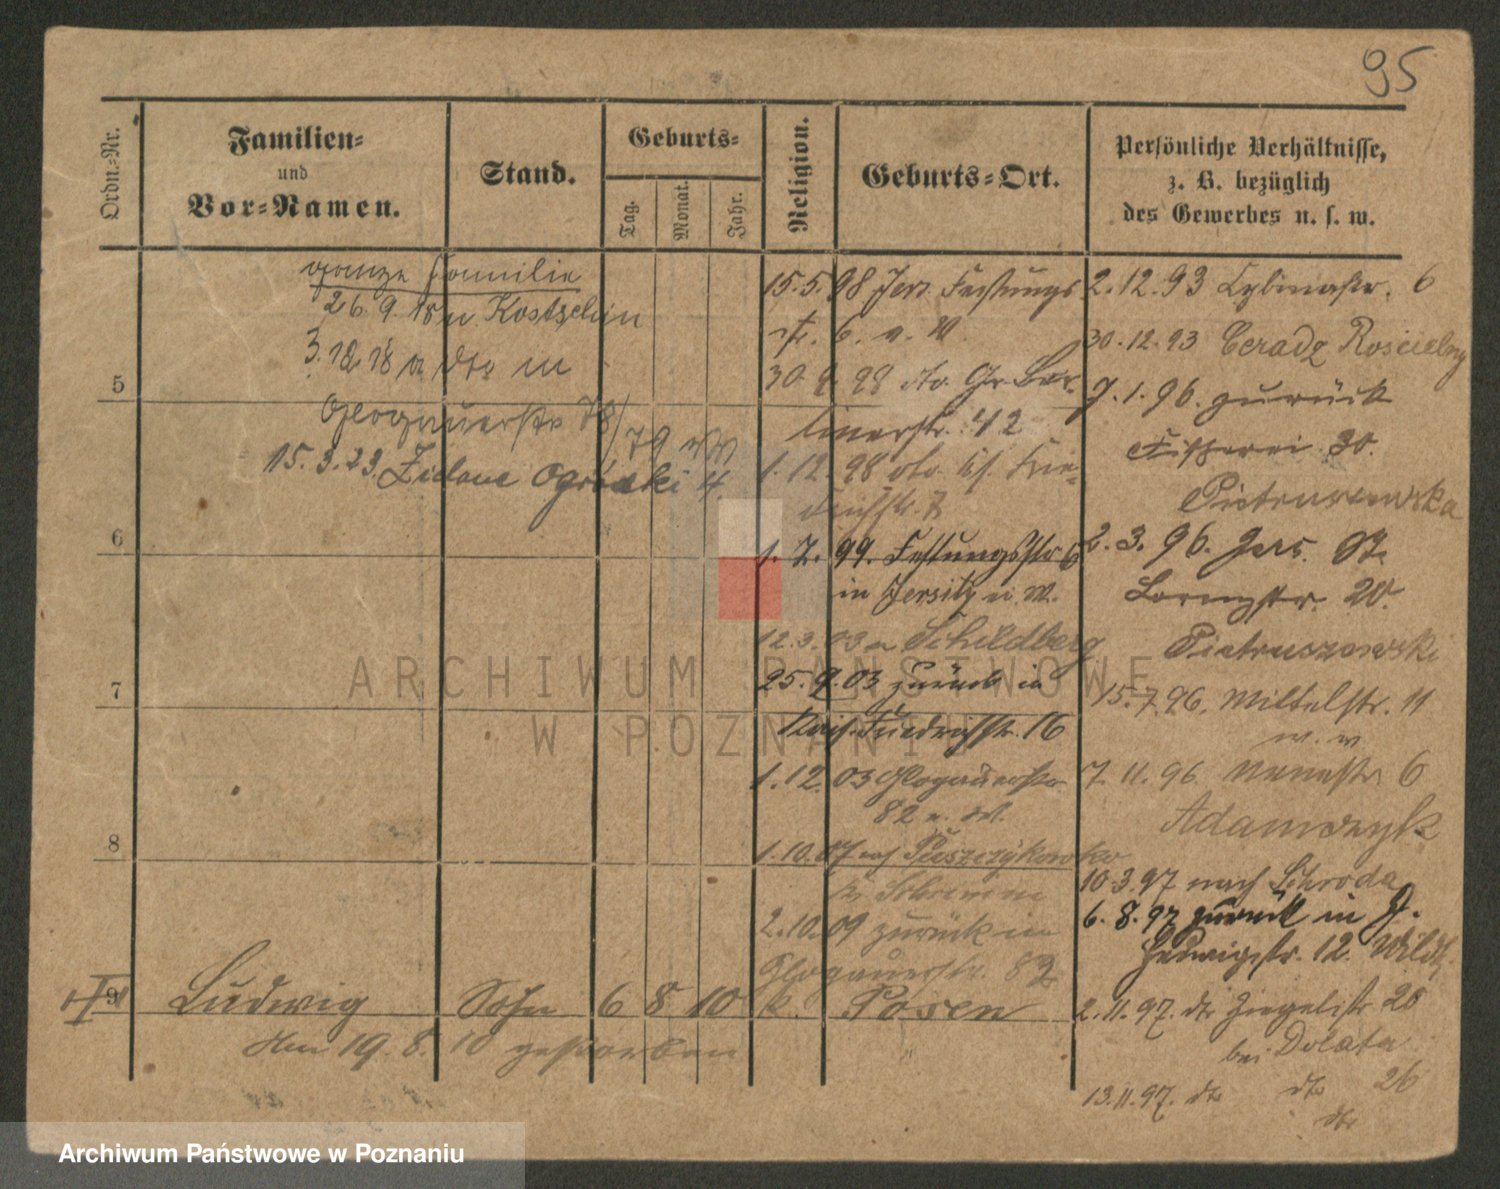 95
Ordn.-Nr.
Familien-
und
Vor-Namen.
Stand.
Geburts-
Tag.
Monat.
Jahr.
Religion.
Geburts-Ort.
Persönliche Verhältnisse,
z. B. bezüglich
des Gewerbes u. s. w.
ganze Familie
26.9.18 n Kostschin
3.12.18 a dto in
Glogauerstr 78/
79 
15.3.23. Zielone Ogródki 4
5
6
7
8
15.5.98 Jers. Festungs
str. 6. n. W.
30.9.98 dto. Gr. Ber-
linerstr. 42
1.12.98 dto. Frie-
drichstr. 7
1.7.99. Festungsstr 6
in Jersitz n. W.
12.3.03 n Schildberg
25.9.03 zurück in
Friedrichstr. 16
1.12.03 Glogauerstr
82 n. W.
1.10.07 nach Puszczykowko
Kr. Schrimm
2.10.09 zurück in
Glogauerstr. 82
2.12.93 6
30.12.93 Ceradz Koscielny
7.1.96. zurück
Fischerei 30.
Pietruszewska
2.3.96. Jers. St.
Lorenzstr. 20.
Pietruszewski
15.7.96. Mittelstr. 11
7.11.96. Neuestr 6
Adamczyk
10.3.97 nach Schroda
6.8.97 zurück in J.
Hedwigstr. 12 Wilda
2.11.97. dto Ziegelstr 26
bei Dolata
13.11.97. dto dto 26
dto
9 Ludwig Sohn 6 8 10 k. Posen
Am 19.8.10 gestorben
ARCHIWUM PAŃSTWOWE
W POZNANIU
Archiwum Państwowe w Poznaniu